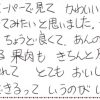 ーパーで見て かわいい
てみたいと思いました。
ちょうど良くて、あんの
る 果肉も きちんと
れて とても おいし
きるって いうのがい